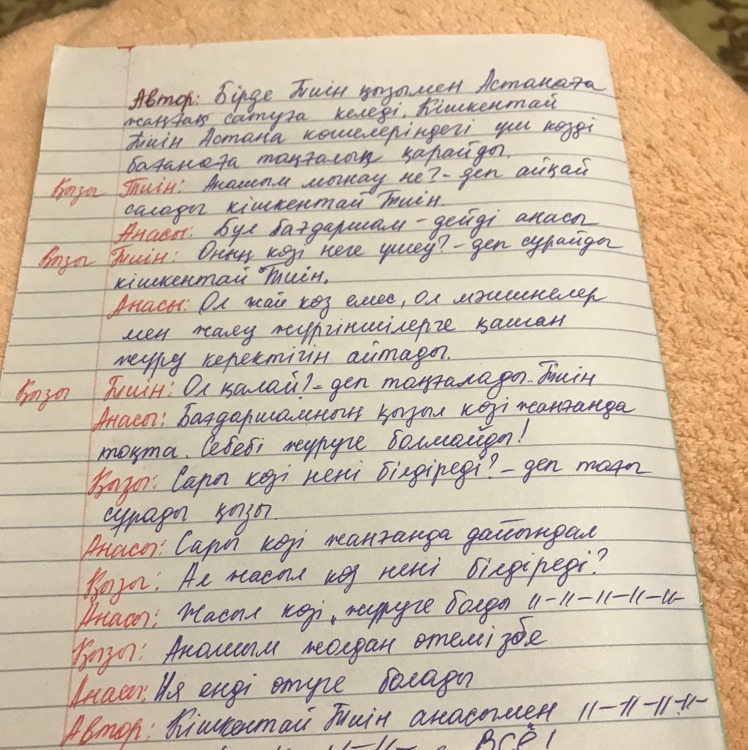 Автор: Бірде Тиін қызымен Астанаға
жаңғақ сатуға келеді. Кішкентай
Тиін Астана көшелеріндегі үш көзді
бағанаға таңғалып қарайды.
Қызы Тиін: Анашым мынау не? - деп айқай
салады кішкентай Тиін.
Анасы: Бұл бағдаршам - дейді анасы
Қызы Тиін: Оның көзі неге үшеу? - деп сұрайды
кішкентай Тиін.
Анасы: Ол жай көз емес, ол мәшинелер
мен жалу жүргіншілерге қашан
жүру керектігін айтады.
Қызы Тиін: Ол қалай? - деп таңғалады. Тиін
Анасы: Бағдаршамның қызыл көзі жанғанда
тоқта. Себебі жүруге болмайды!
Қызы: Сары көзі нені білдіреді? - деп тағы
сұрады қызы.
Анасы: Сары көзі жанғанда дайындал
Қызы: Ал жасыл көз нені білдіреді?
Анасы: Жасыл көзі, жүруге болды 11-11-11-11-11-
Қызы: Анашым жолдан өтеміз бе
Анасы: Ия енді өтуге болады
Автор: Кішкентай Тиін анасымен 11-11-11-11-
11-11- ВСЁ!